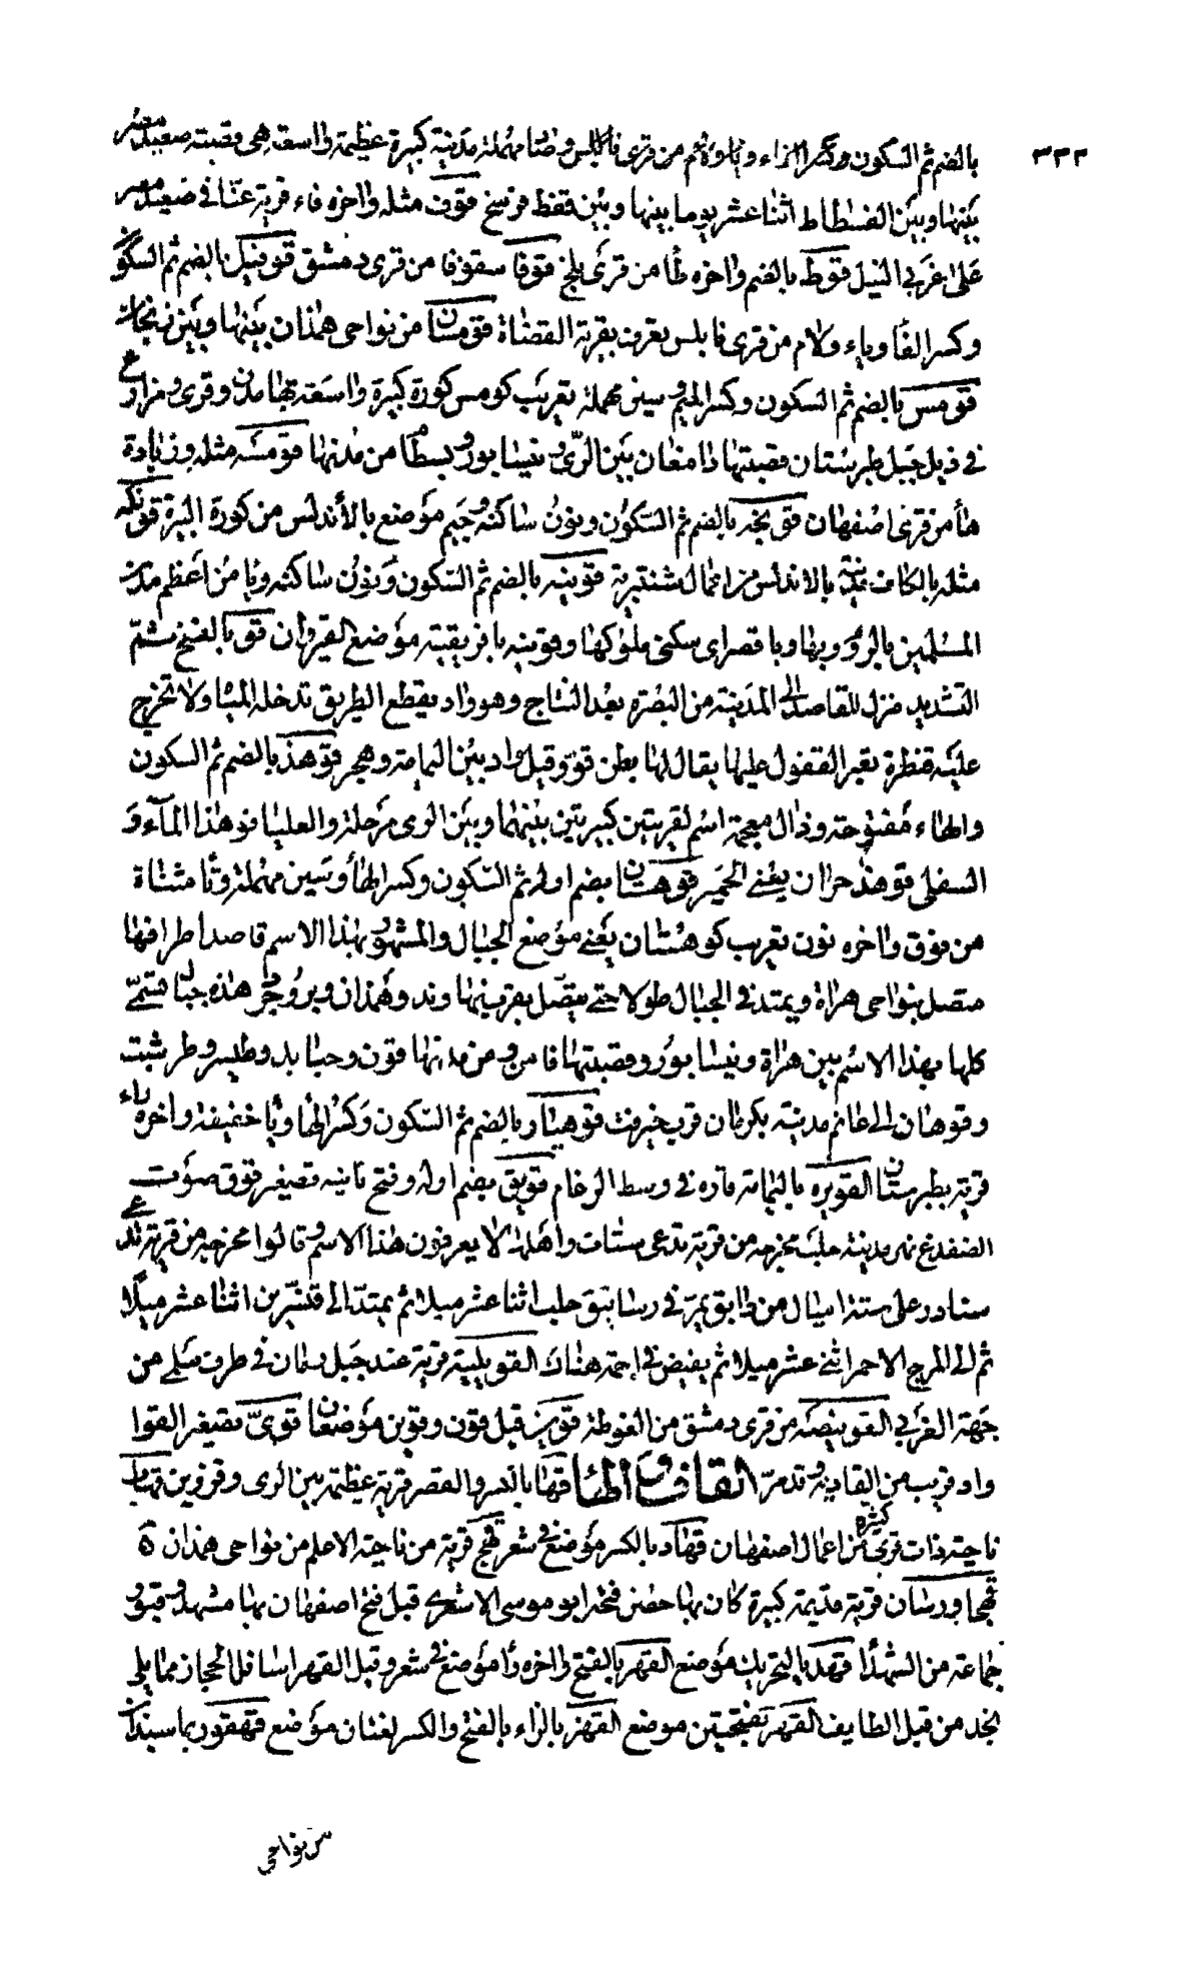 ٣٣٢
بالضم ثم السكون وكسر الزاء وياء ولام من قرى نابلس وصاد مهملة مدينة كبيرة عظيمة واسعة هي قصبة صعيد مصر
بينها وبين الفسطاط اثنا عشر يوما بينها وبين قفط فرسخ قوف مثله واخره فاء قرية عنا في صعيد مصر
على غربي النيل قوط بالضم واخره طا من قرى بلخ قوفا سقوفا من قرى دمشق قوفيل بالضم ثم السكون
وكسر الفا وياء ولام من قرى نابلس تعرف بقرية القضاة قومسان من نواحي همذان بينها وبين زنجان
قومس بالضم ثم السكون وكسر الميم وسين مهملة تعريب كومس كورة كبيرة واسعة بها مدن وقرى ومزارع
في ذيل جبل طبرستان قصبتها دامغان بين الري ونيسابور وبسطام من مدنها قومسه مثله وزيادة
ها من قرى اصفهان قونجه بالضم ثم السكون ونون ساكنة وجيم موضع بالأندلس من كورة البيرة قونكه
مثله بالكاف مدينة بالاندلس من اعمال شنتبرية قونيه بالضم ثم السكون ونون ساكنه ويا من اعظم مدن
المسلمين بالروم وبها وبا قصراى سكنى ملوكها وقونيه بافريقية موضع القيروان قو بالفتح ثم
التشديد منزل للقاصد الى المدينة من البصرة بعد النباج وهو واد يقطع الطريق تدخله المياه ولا تخرج
عليه قنطرة يعبر القفول عليها يقال لها بطن قو وقيل واد بين اليمامة وهجر قوهذ بالضم ثم السكون
والهاء مفتوحة وذال معجمة اسم لقريتين كبيرتين بينهما وبين الرى مرحلة والعليا قوهذ الماء و
السفلى قوهذ خران يعني الحمير قوهستان بضم اوله ثم السكون وكسر الها وسين مهملة وتا مثناة
من فوق واخره نون تعريب كوهستان يعني موضع الجبال والمشهور بهذا الاسم قاصدا طرافها
متصل بنواحي هراة ويمتد في الجبال طولا حتى يتصل بقرب نهاوند وهمذان وبروجرد هذه جبال تسمى
كلها بهذا الاسم بين هراة ونيسابور وقصبتها قاين ومن مدنها قون وجنابد وطبس وطريثيت
وقوهان الى غانم مدينة بكرمان قرب جيرفت قوهيار بالضم ثم السكون وكسر الها ويا خفيفة واخره راء
قرية بطبرستان القويره باليمامة قاره في وسط الرغام قويق بضم اوله وفتح ثانيه تصغير قوق صوت
الضفدع نهر مدينة حلب مخرجه من قرية تدعى سبتات واهلها لا يعرفون هذا الاسم وقالوا مخرجه من قرية تدعى
سنادر على ستة اميال من دابق يمر في رساتيق حلب اثنا عشر ميلا ثم يمتد الى قنسرين اثنا عشر ميلا
ثم الى المرج الاحمر اثني عشر ميلا ثم يفيض في اجمة هناك القويلية قرية عند جبل رمان في طرف سلمى من
جهة الغربي القوينصه من قرى دمشق من الغوطة قوين قيل قون وقوين موضعان قوي تصغير القوا
واد قريب من القادية وتدمر القاف والهاء قها بالكسر والقصر قرية عظيمة بين الرى وقزوين قهاب
ناحية ذات قرى كثيرة من اعمال اصفهان قهاد بالكسر موضع في شعر قهج قرية من ناحية الاعلم من نواحي همذان
قهجاورسان قرية قديمة كبيرة كان بها حصن فتحه ابو موسى الاشعري قبل فتح اصفهان بها مشهد وقبور
جماعة من الشهدا قهد بالتحريك موضع القهر بالفتح واخره را موضع في شعر وقيل القهر اسافل الحجاز مما يلي
نجد من قبل الطايف القهر بفتحتين موضع القهز بالزاء بالفتح والكسر لغتان موضع قهقور بماسبذان
من نواحي